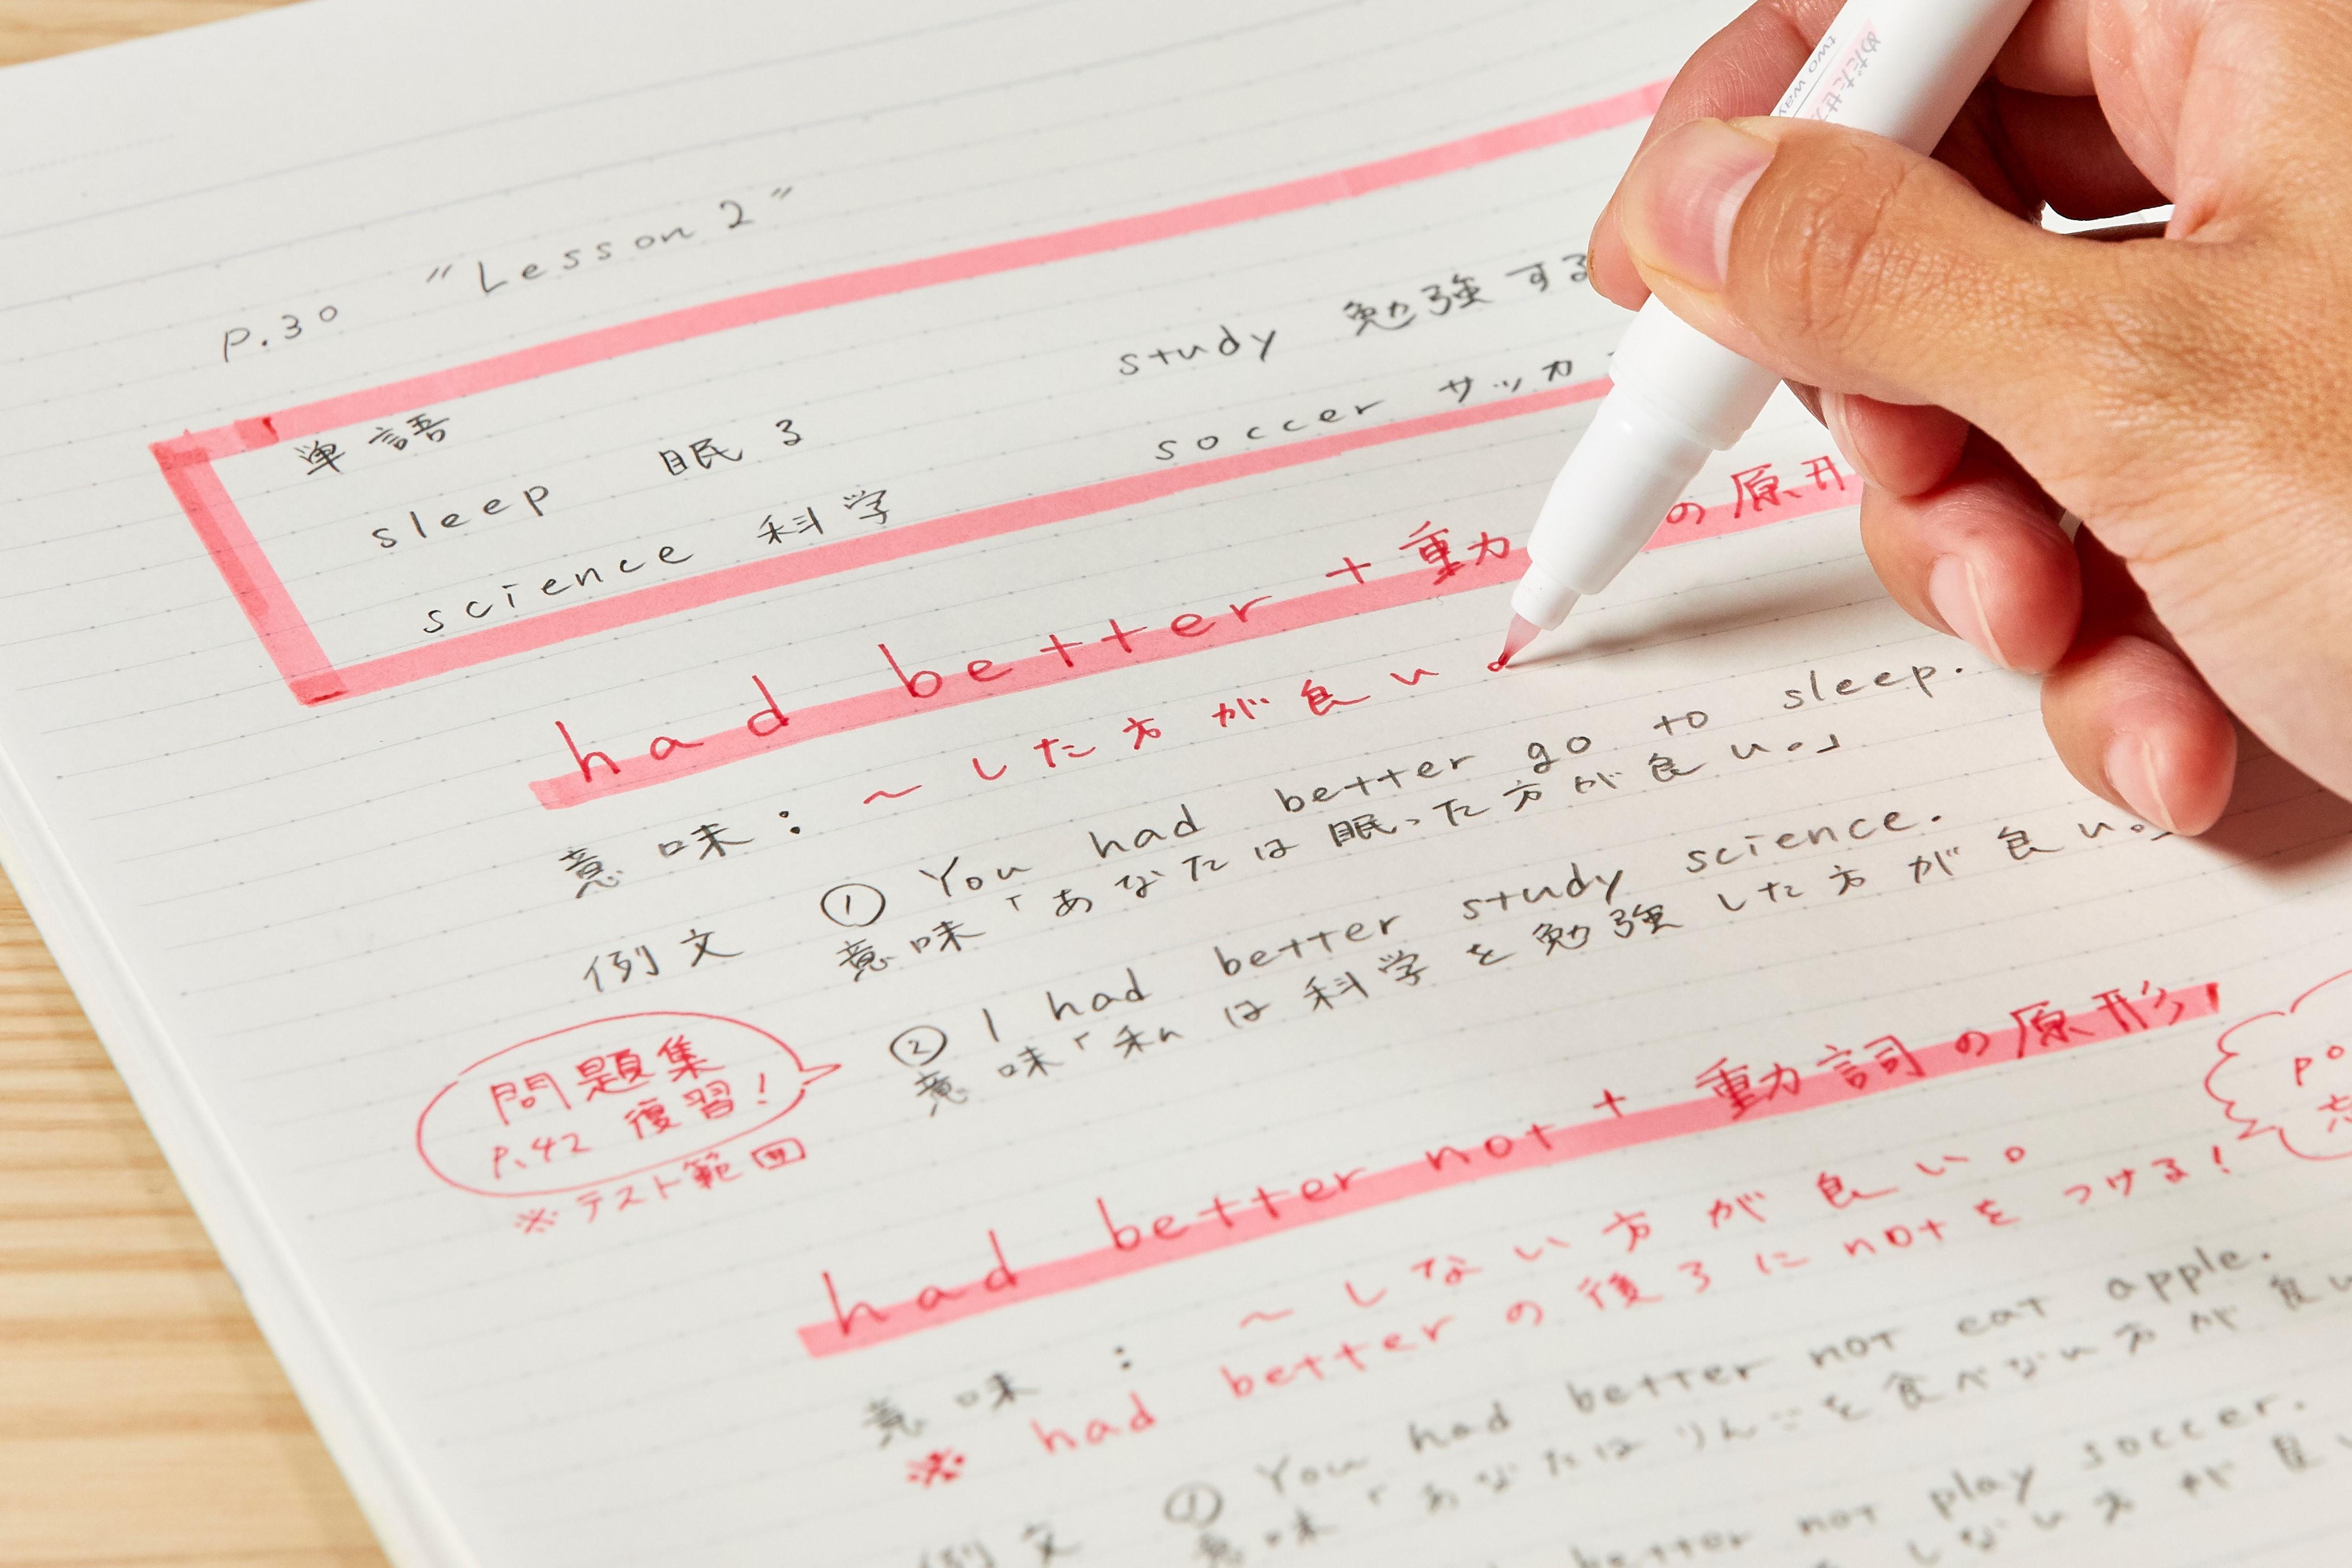 P.30 "Lesson 2"
単語
sleep 眠る study 勉強する
science 科学 soccer サッカ
had better + 動 の原形
意味：～した方が良い。
例文 ① You had better go to sleep.
意味「あなたは眠った方が良い。」
② I had better study science.
意味「私は科学を勉強した方が良い。」
問題集
P.42 復習！
※テスト範囲
had better not + 動詞の原形
意味：～しない方が良い。
※ had better の後ろに not をつける！
po
例文 ① You had better not eat apple.
意味「あなたはりんごを食べない方が良い
better not play soccer.
しない方が良い
two way